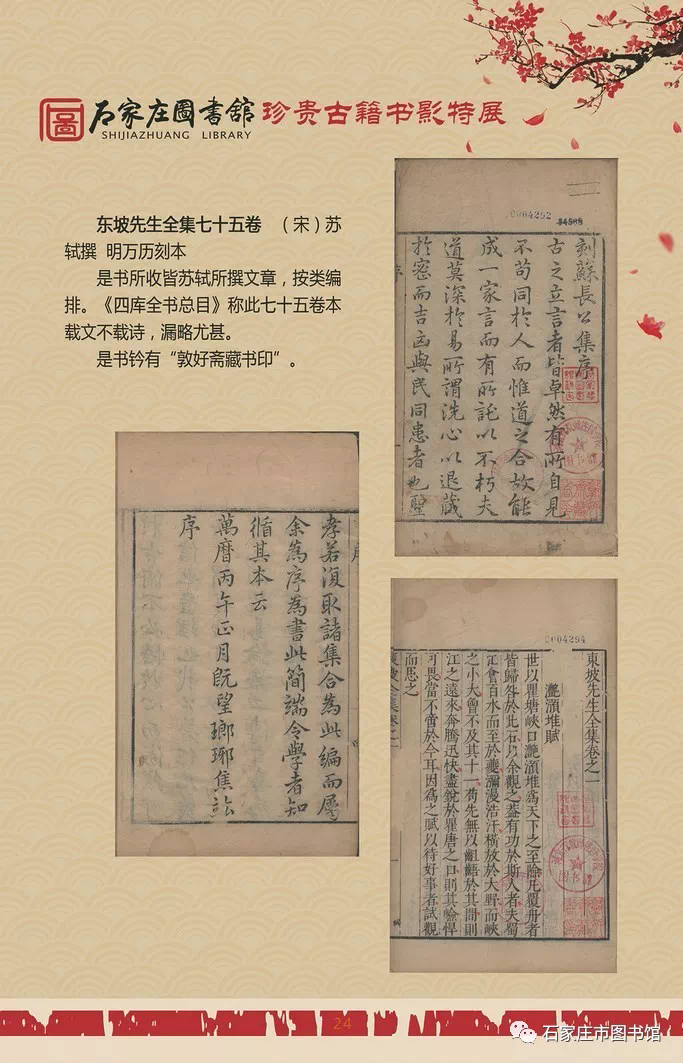 石家庄圖書舘 珍贵古籍书影特展
SHIJIAZHUANG LIBRARY
东坡先生全集七十五卷 （宋）苏
轼撰 明万历刻本
是书所收皆苏轼所撰文章，按类编
排。《四库全书总目》称此七十五卷本
载文不载诗，漏略尤甚。
是书钤有“敦好斋藏书印”。
0004292
刻蘇長公集序
古之立言者皆卓然有所自見
不苟同於人而惟道之合故能
成一家言而有所託以不朽夫
道莫深於易所謂洗心以退藏
於密而吉凶與民同患者也聖
孝若復取諸集合為此編而屬
余為序為書此簡端令學者知
循其本云
萬曆丙午正月旣望瑯琊焦竑
序
0004294
東坡先生全集卷之一
灔澦堆賦
世以瞿塘峽口灔澦堆爲天下之至險凡覆舟者
皆歸咎於此石以余觀之蓋有功於斯人者夫蜀
江會百水而至於夔瀰漫浩汗橫放於大野而峽
之小大曾不及其十一苟先無以齟齬於其間則
江之遠來奔騰迅快盡銳於瞿唐之口則其嶮悍
可畏當不啻於今耳因爲之賦以待好事者試觀
而思之
24
石家庄市图书馆